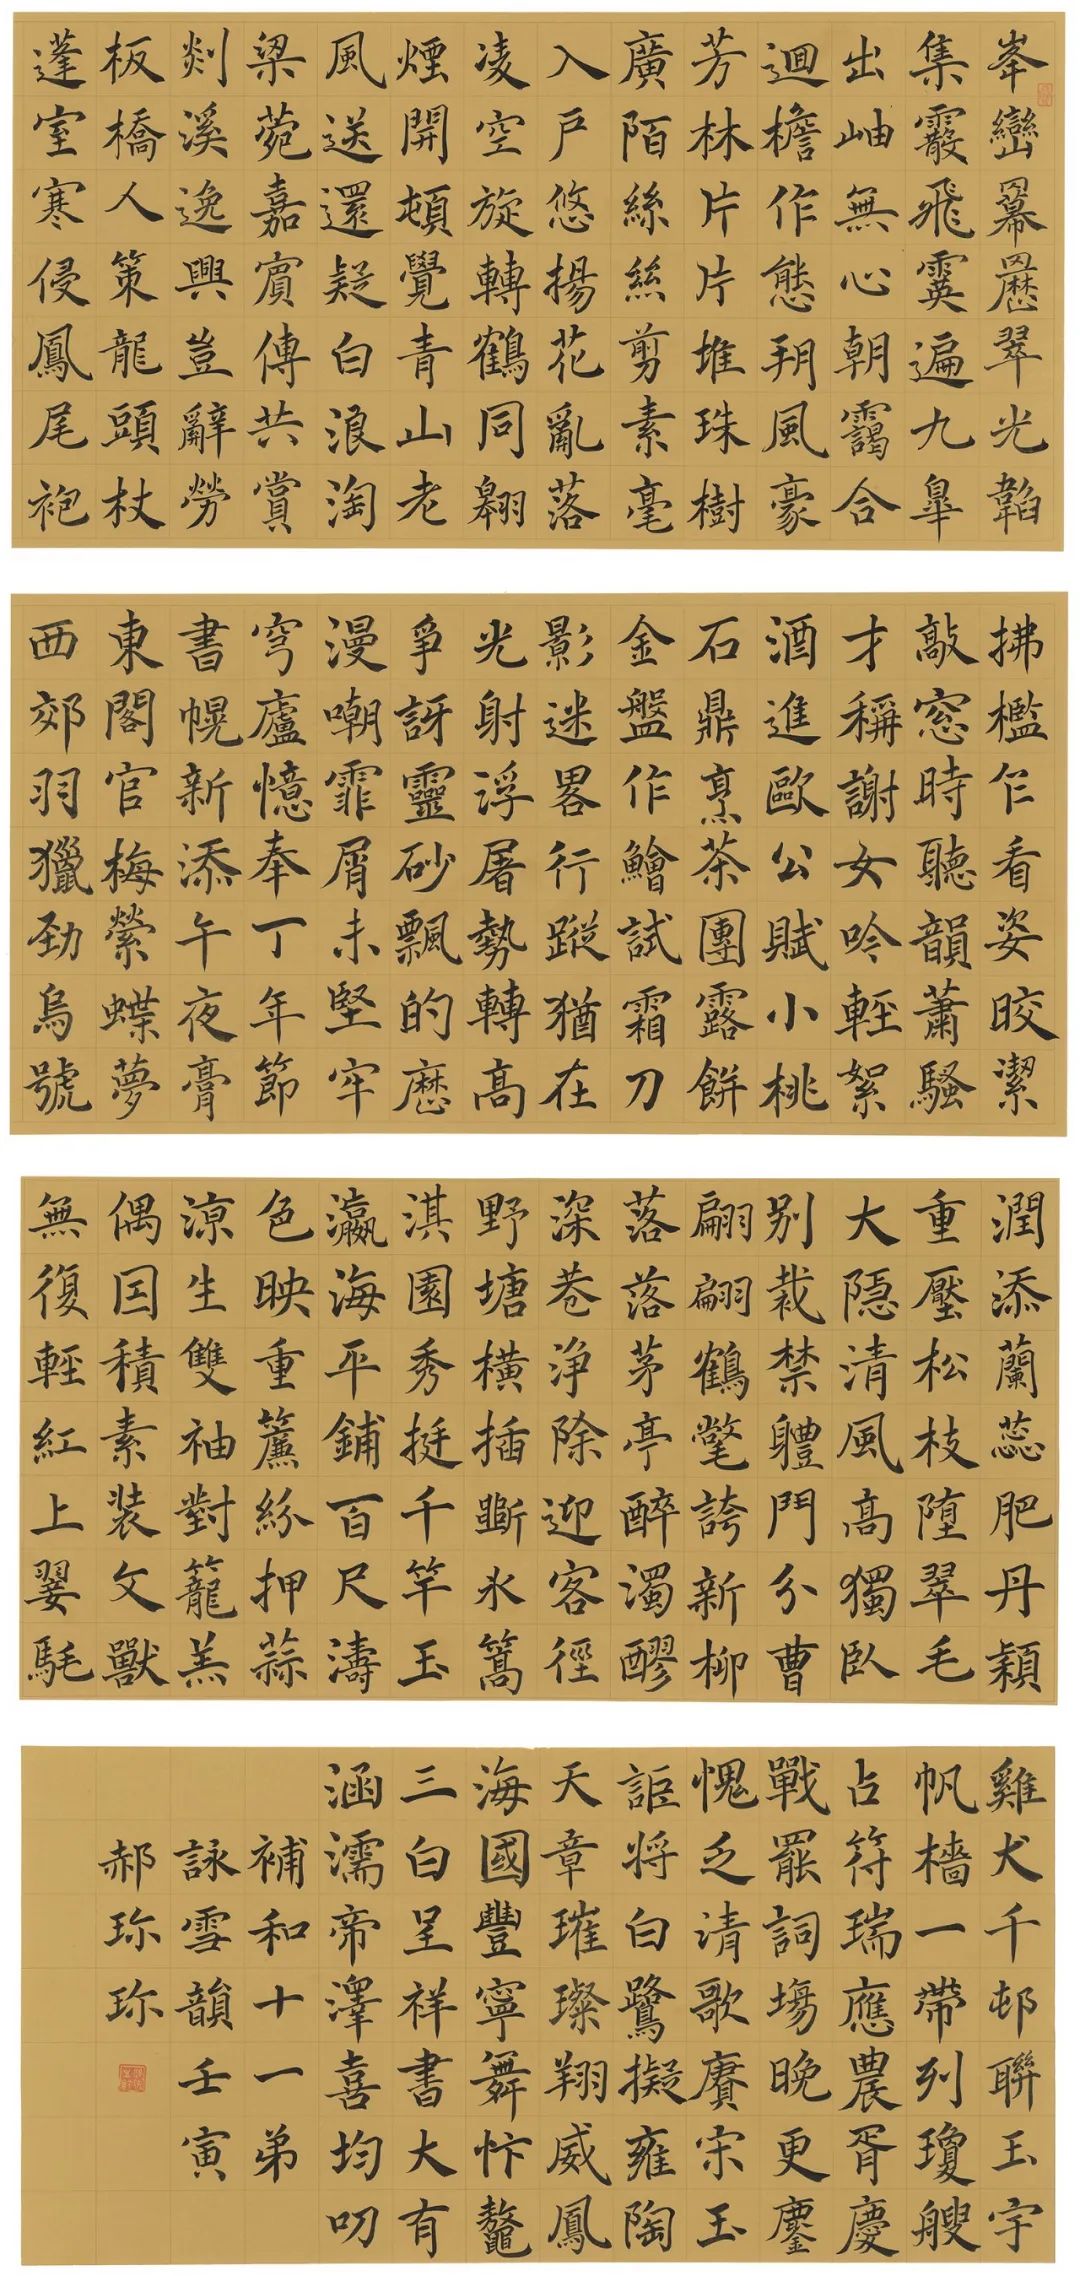 峯巒羃䍥翠光韜
集霰飛霙遍九皐
出岫無心朝靄合
迴檐作態朔風豪
芳林片片堆珠樹
廣陌絲絲剪素毫
入戶悠揚花亂落
凌空旋轉鶴同翱
煙開頓覺青山老
風送還疑白浪淘
梁菀嘉賓傳共賞
剡溪逸興豈辭勞
板橋人策龍頭杖
蓬室寒侵鳳尾袍
拂檻乍看姿皎潔
敲窓時聽韻蕭騷
才稱謝女吟輕絮
酒進歐公賦小桃
石鼎烹茶團露餅
金盤作鱠試霜刀
影迷畧行蹤猶在
光射浮屠勢轉高
爭訝靈砂飄的歷
漫嘲霏屑未堅牢
穹廬憶奉丁年節
書幌新添午夜膏
東閣官梅縈蝶夢
西郊羽獵勁烏號
潤添蘭蕊肥丹穎
重壓松枝墮翠毛
大隱清風高獨臥
別裁禁體鬥分曹
翩翩鶴氅誇新柳
落落茅亭醉濁醪
深巷淨除迎客徑
野塘橫插斷氷篙
淇園秀挺千竿玉
瀛海平鋪百尺濤
色映重簾紛押蒜
涼生雙袖對籠羔
偶因積素裝文獸
無復輕紅上翣髦
雞犬千邨聯玉宇
帆檣一帶列瓊艘
占符瑞應農胥慶
戰罷詞場晚更鏖
愧乏清歌賡宋玉
詎將白鷺擬雍陶
天章璀璨翔威鳳
海國豐寧舞忭鼇
三白呈祥書大有
涵濡帝澤喜均叨
補和十一弟
詠雪韻壬寅
郝珎珎